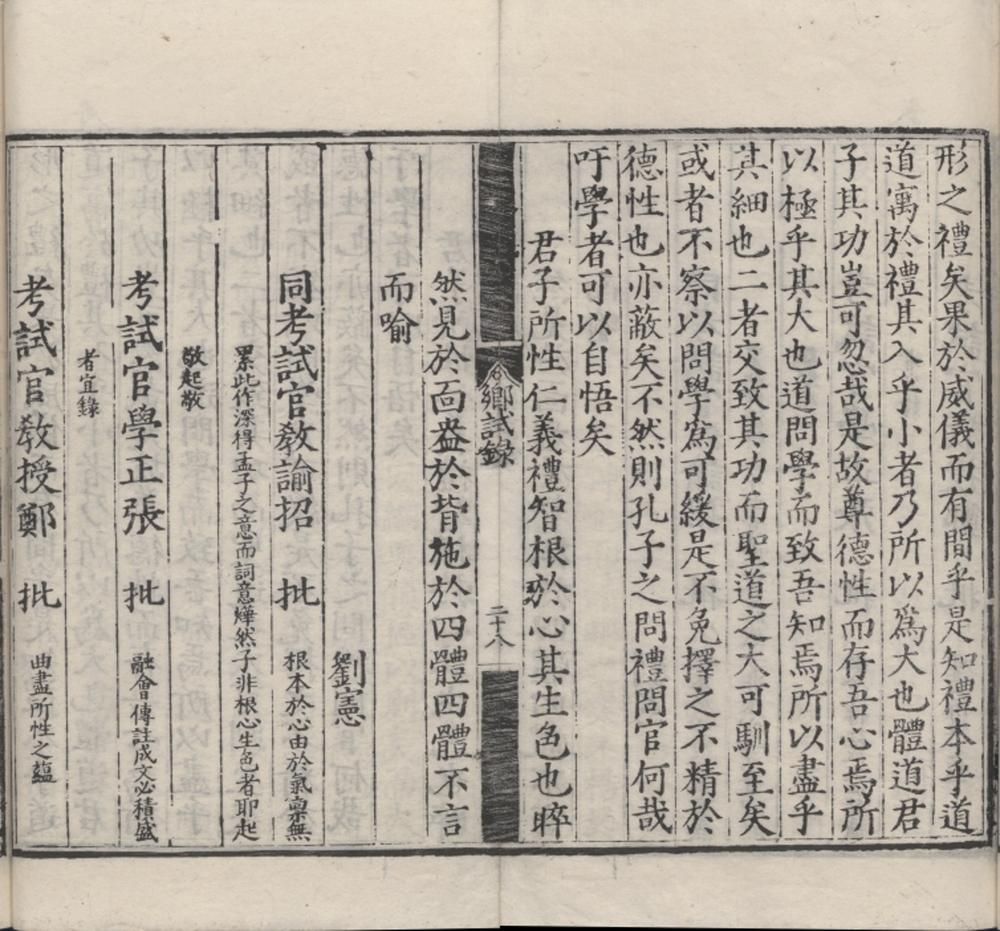 形之禮矣果於威儀而有間乎是知禮本乎道
道寓於禮其入乎小者乃所以爲大也體道君
子其功豈可忽哉是故尊德性而存吾心焉所
以極乎其大也道問學而致吾知焉所以盡乎
其細也二者交致其功而聖道之大可馴至矣
或者不察以問學爲可緩是不免擇之不精於
德性也亦蔽矣不然則孔子之問禮問官何哉
吁學者可以自悟矣
君子所性仁義禮智根於心其生色也睟
鄉試錄
二十八
然見於面盎於背施於四體四體不言
而喻
劉憲
同考試官教諭招 批 根本於心由於氣稟無
累此作深得孟子之意而詞意燁然子非根心生色者耶起
敬起敬
考試官學正張 批 融會傳註成文必積盛
者宜錄
考試官教授鄭 批 曲盡所性之蘊